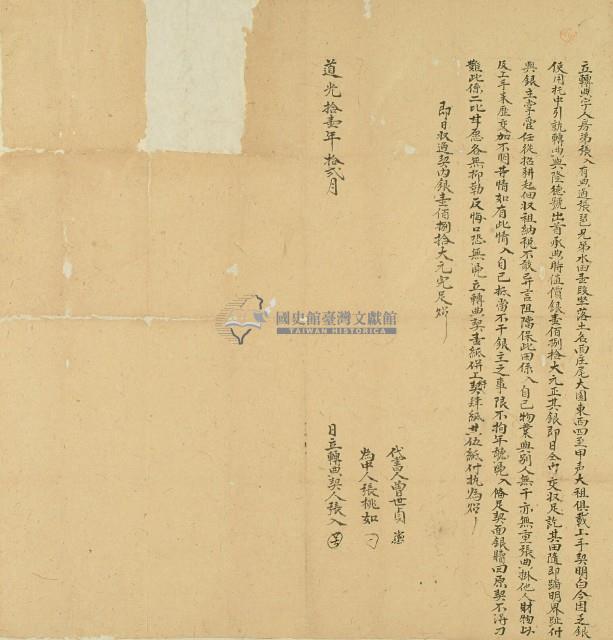 立轉典字人房弟張入有典過張琶兄弟水田壹段坐落土名西庄尾大園東西四至甲声大租俱載上手契明白今因乏銀
使用托中引就轉典與隆德號出首承典時值價銀壹佰捌拾大元正其銀即日仝中交收足訖其田隨即踏明界址付
與銀主掌管任從招耕起佃收租納稅不敢異言阻隔保此田係入自己物業與別人無干亦無重張典掛他人財物以
及上手來歷交加不明等情如有此情入自己抵當不干銀主之事限不拘年號聽入俻足契面銀贖回原契不得刁
難此係二比甘愿各無抑勒反悔口恐無憑立轉典契壹紙併上手契肆紙共伍紙付执為炤
即日收過契內銀壹佰捌拾大元完足炤
代書人曾世貞
為中人張桃如
道光拾壹年拾弍月
日立轉典契人張入
國史館臺灣文獻館
TAIWAN HISTORICA